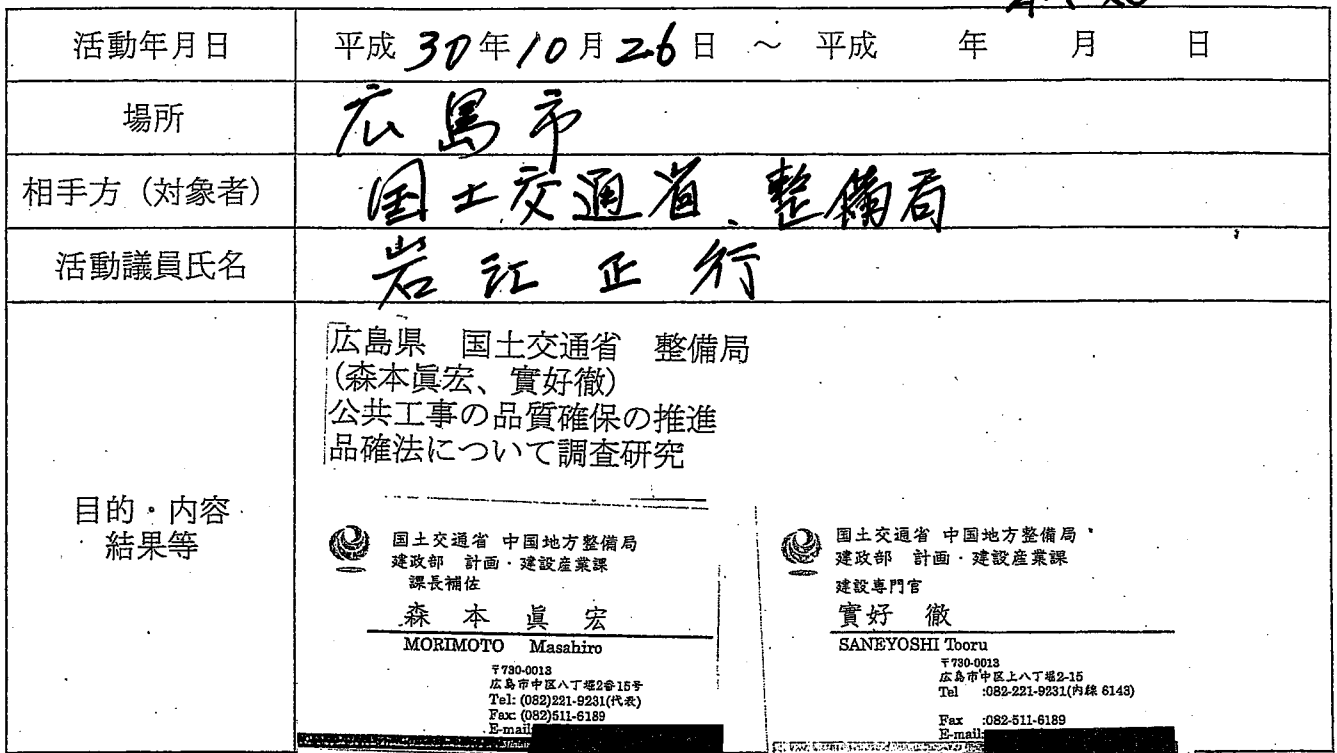 活動年月日 平成 30年10月26日 ～ 平成 年 月 日
場所 広島市
相手方（対象者） 国土交通省、整備局
活動議員氏名 岩江正行
目的・内容
結果等
広島県 国土交通省 整備局
(森本眞宏、實好徹)
公共工事の品質確保の推進
品確法について調査研究
国土交通省 中国地方整備局
建政部 計画・建設産業課
課長補佐
森 本 眞 宏
MORIMOTO Masahiro
〒730-0013
広島市中区八丁堀2番15号
Tel: (082)221-9231(代表)
Fax: (082)511-6189
E-mail:
国土交通省 中国地方整備局
建政部 計画・建設産業課
建設専門官
實好 徹
SANEYOSHI Tooru
〒730-0013
広島市中区上八丁堀2-15
Tel :082-221-9231(内線 6143)
Fax :082-511-6189
E-mail: